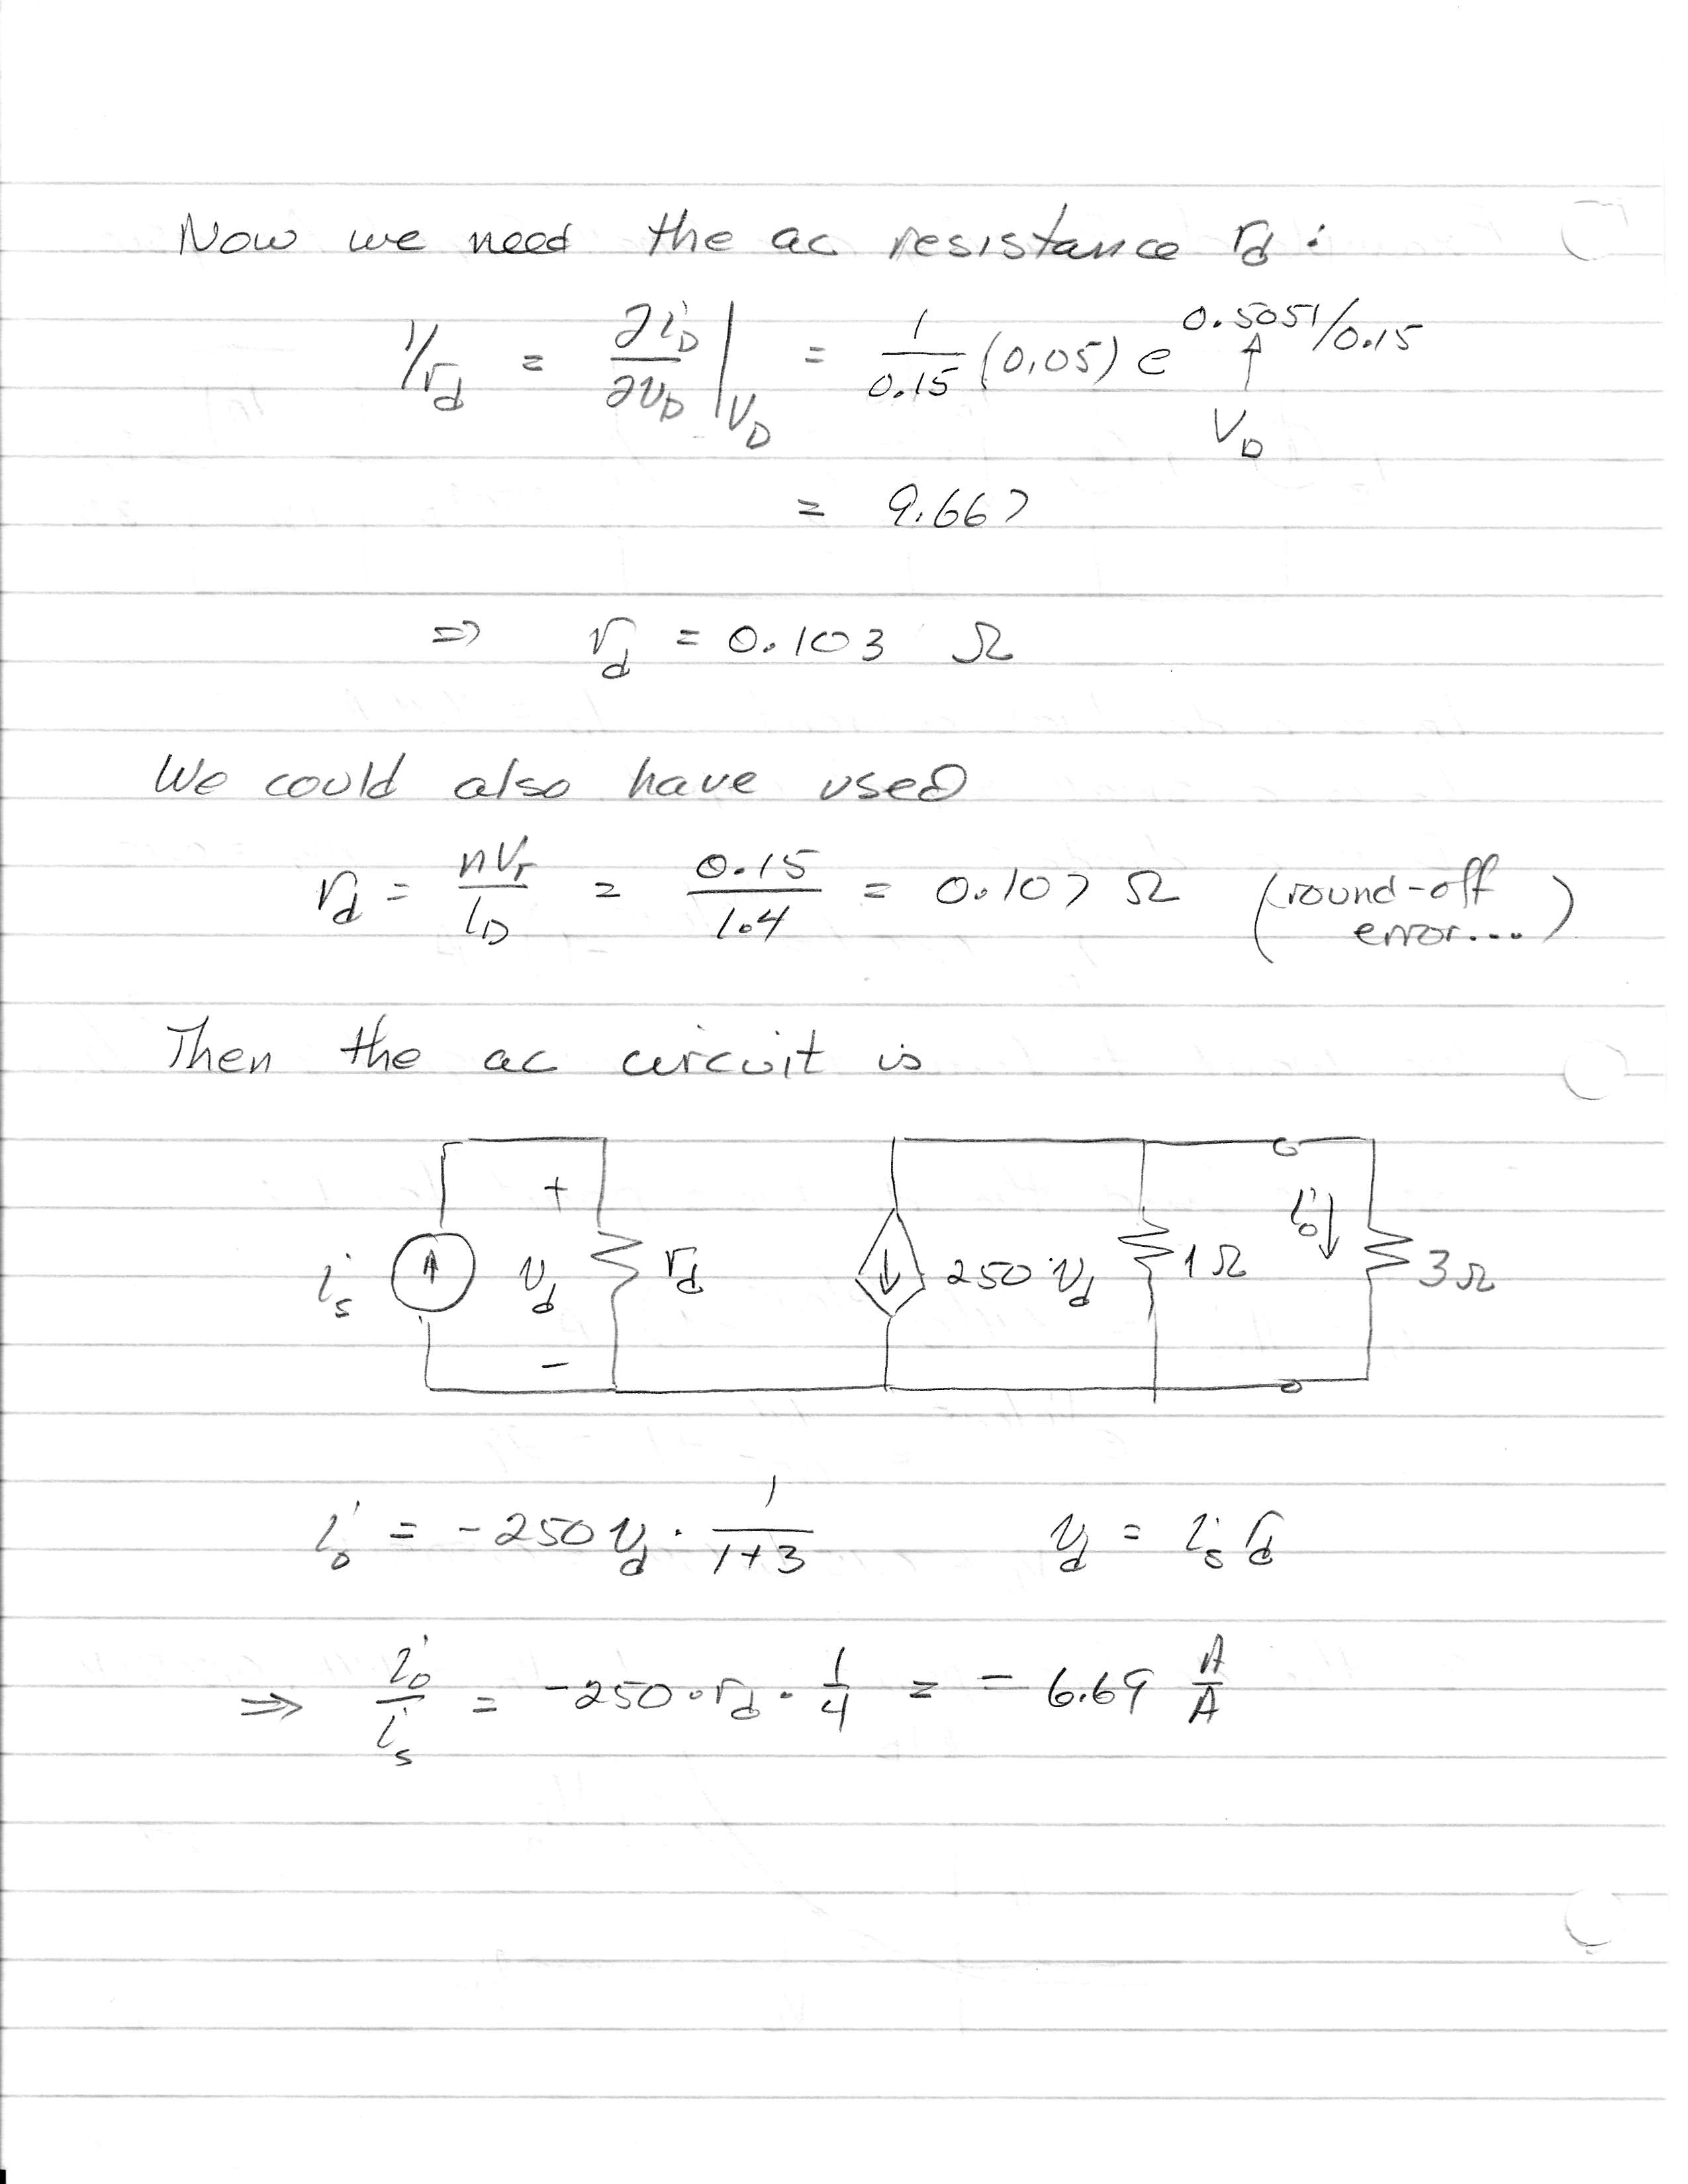 Now we need the ac resistance r_d :
1/r_d = ∂i_D/∂v_D |_V_D = 1/0.15 (0.05) e^0.5051/0.15
↑
V_D
= 9.667
⇒ r_d = 0.103 Ω
We could also have used
r_d = nV_T/I_D = 0.15/1.4 = 0.107 Ω (round-off error...)
Then the ac circuit is
+
i_s v_d r_d 250 v_d 1Ω i_o↓ 3Ω
−
i_o = -250 v_d · 1/1+3 v_d = i_s r_d
⇒ i_o/i_s = -250 · r_d · 1/4 = -6.69 A/A